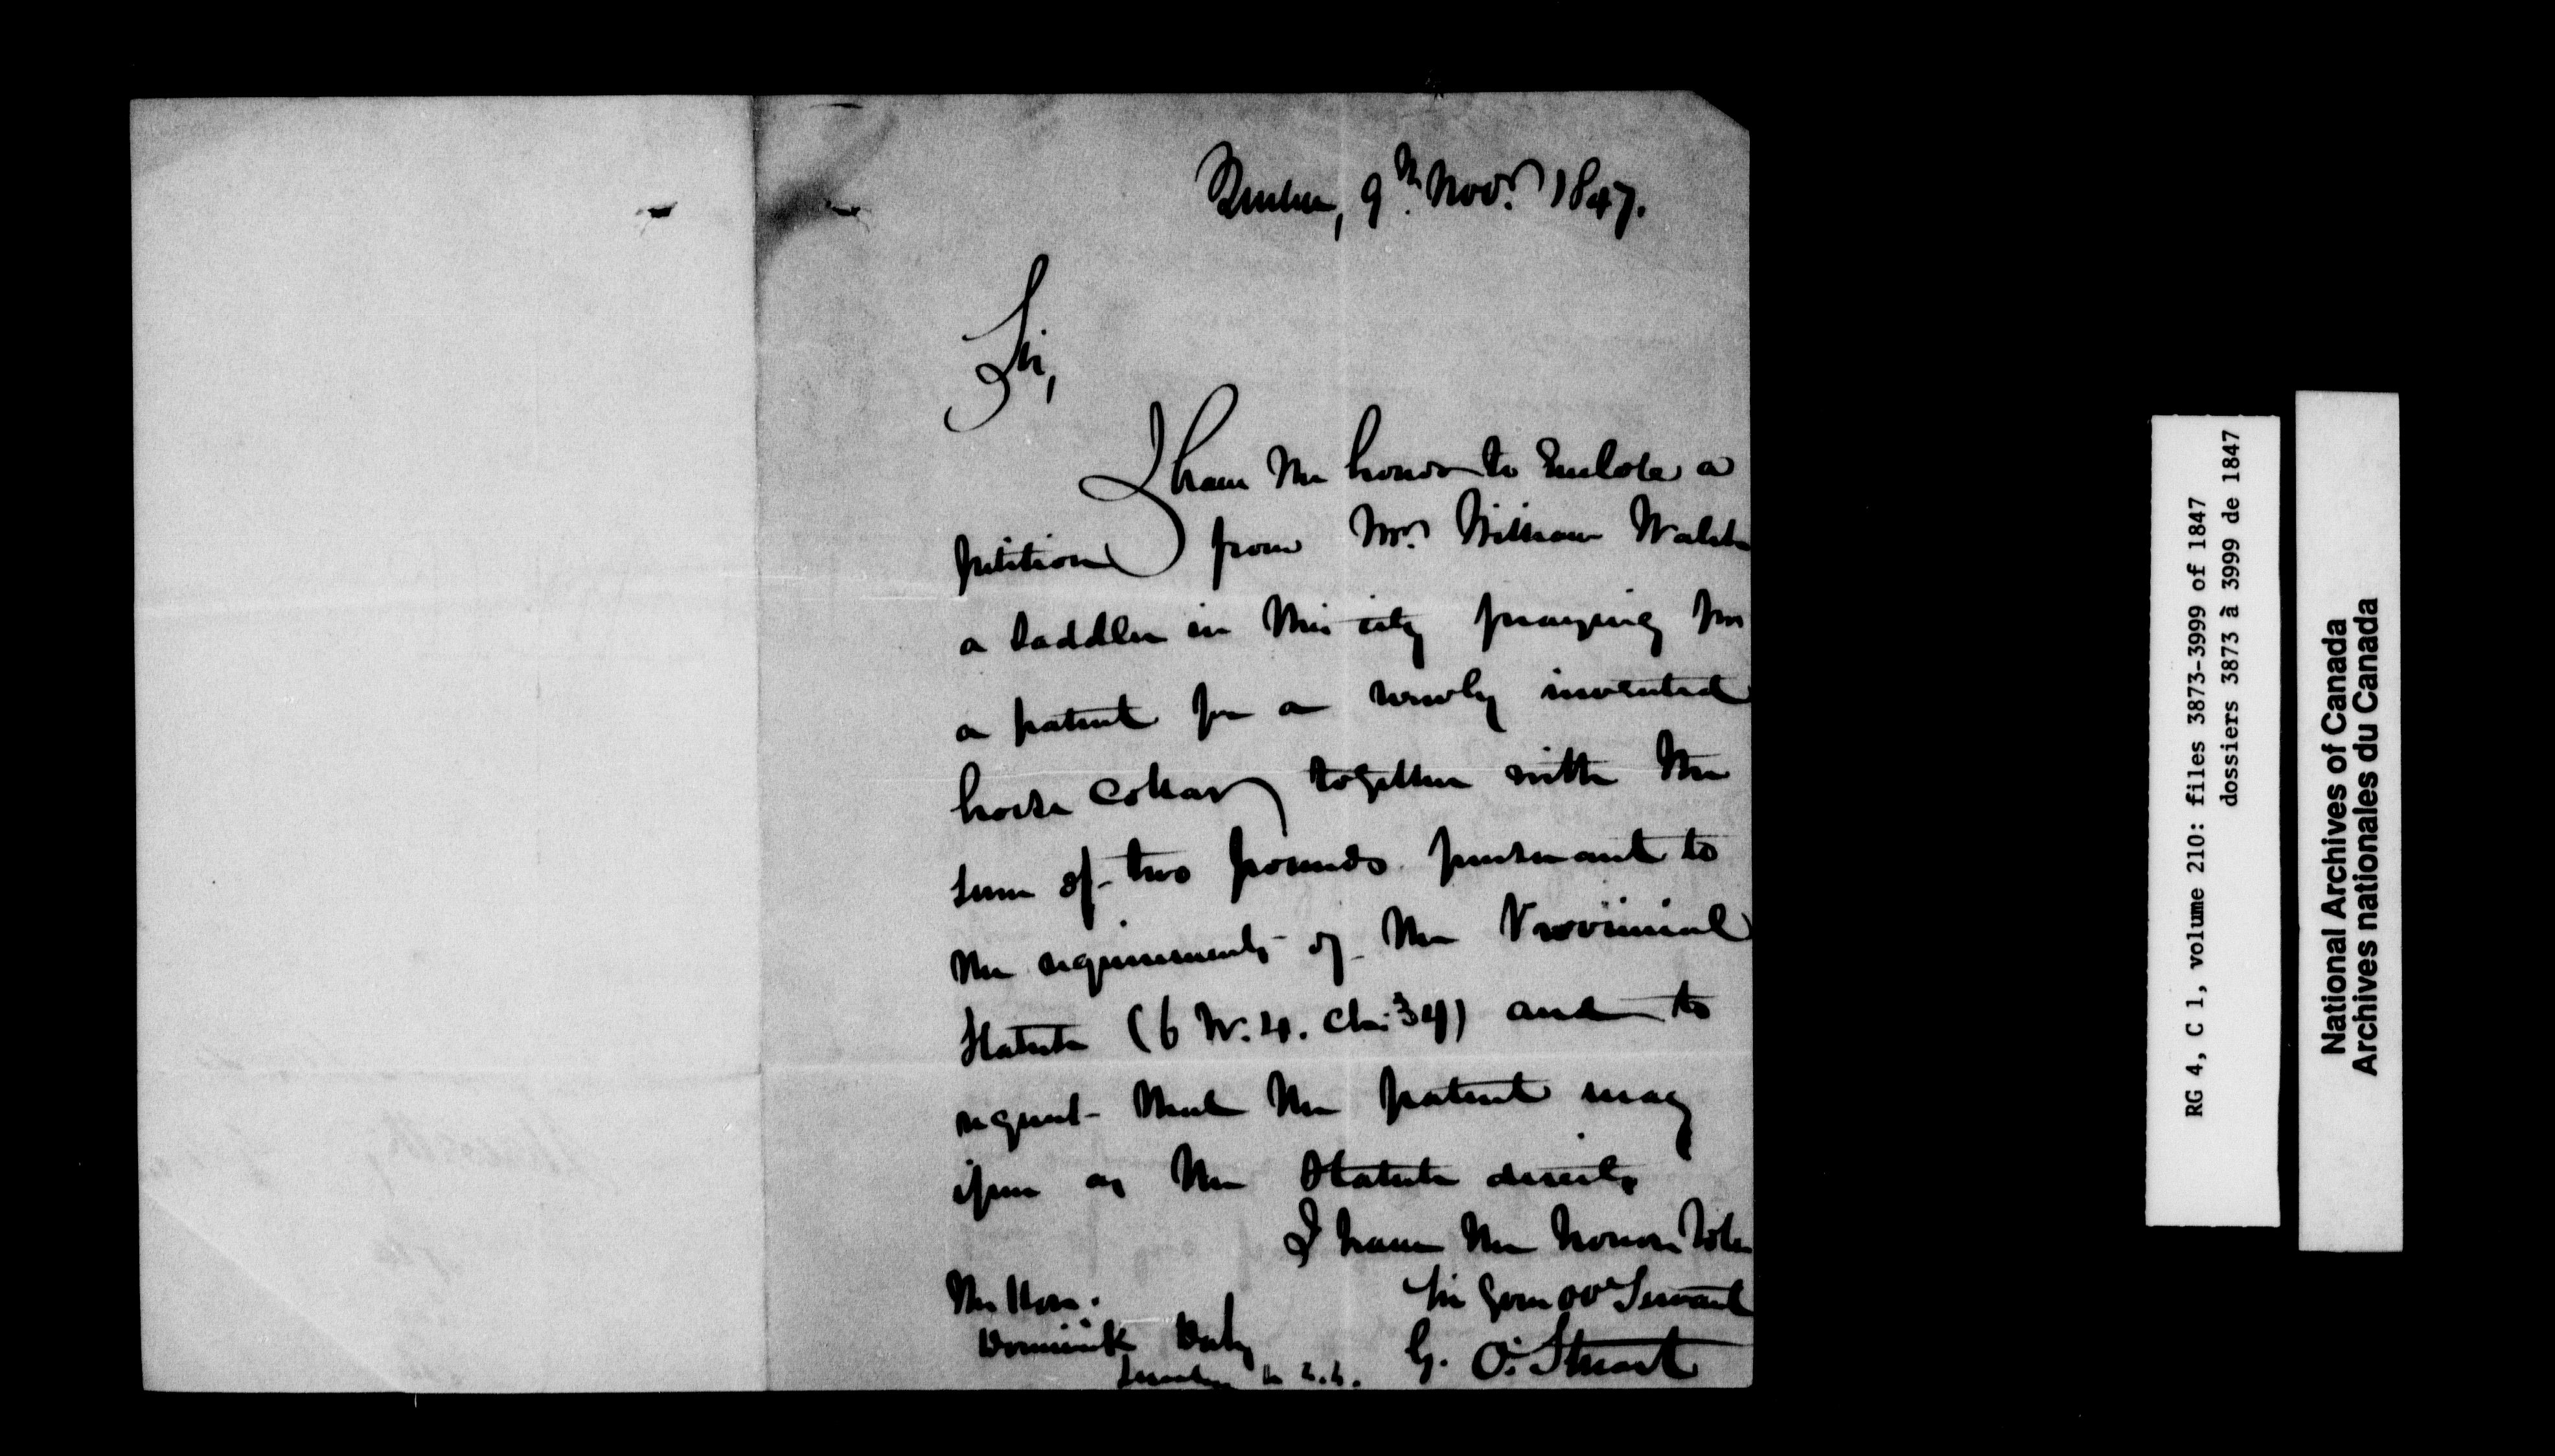 Quebec, 9th Novr 1847.
Sir,
I have the honor to enclose a
petition from Mr. William Walsh
a saddler in this city praying for
a patent for a newly invented
horse collar together with the
sum of two pounds pursuant to
the requirements of the Provincial
Statute (6 W. 4. Ch: 34) and to
request that the patent may
issue as the Statute directs
I have the honor to be
Sir Your Obt Servant
G. O. Stuart
The Hon.
Dominick Daly
RG 4, C 1, volume 210: files 3873-3999 of 1847
dossiers 3873 à 3999 de 1847
National Archives of Canada
Archives nationales du Canada